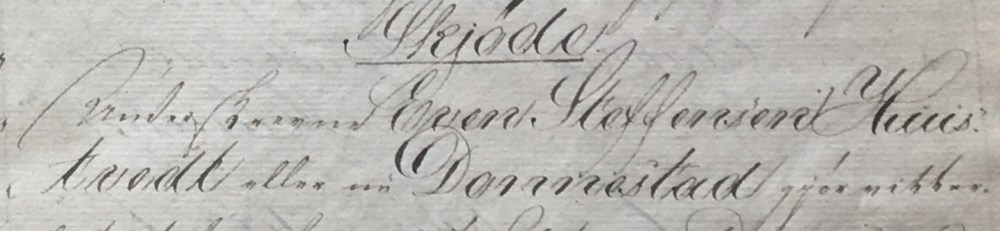 Skjøde
Underskrevne Even Steffensen Huus-
tvedt eller nu Donnestad gjør vitter-